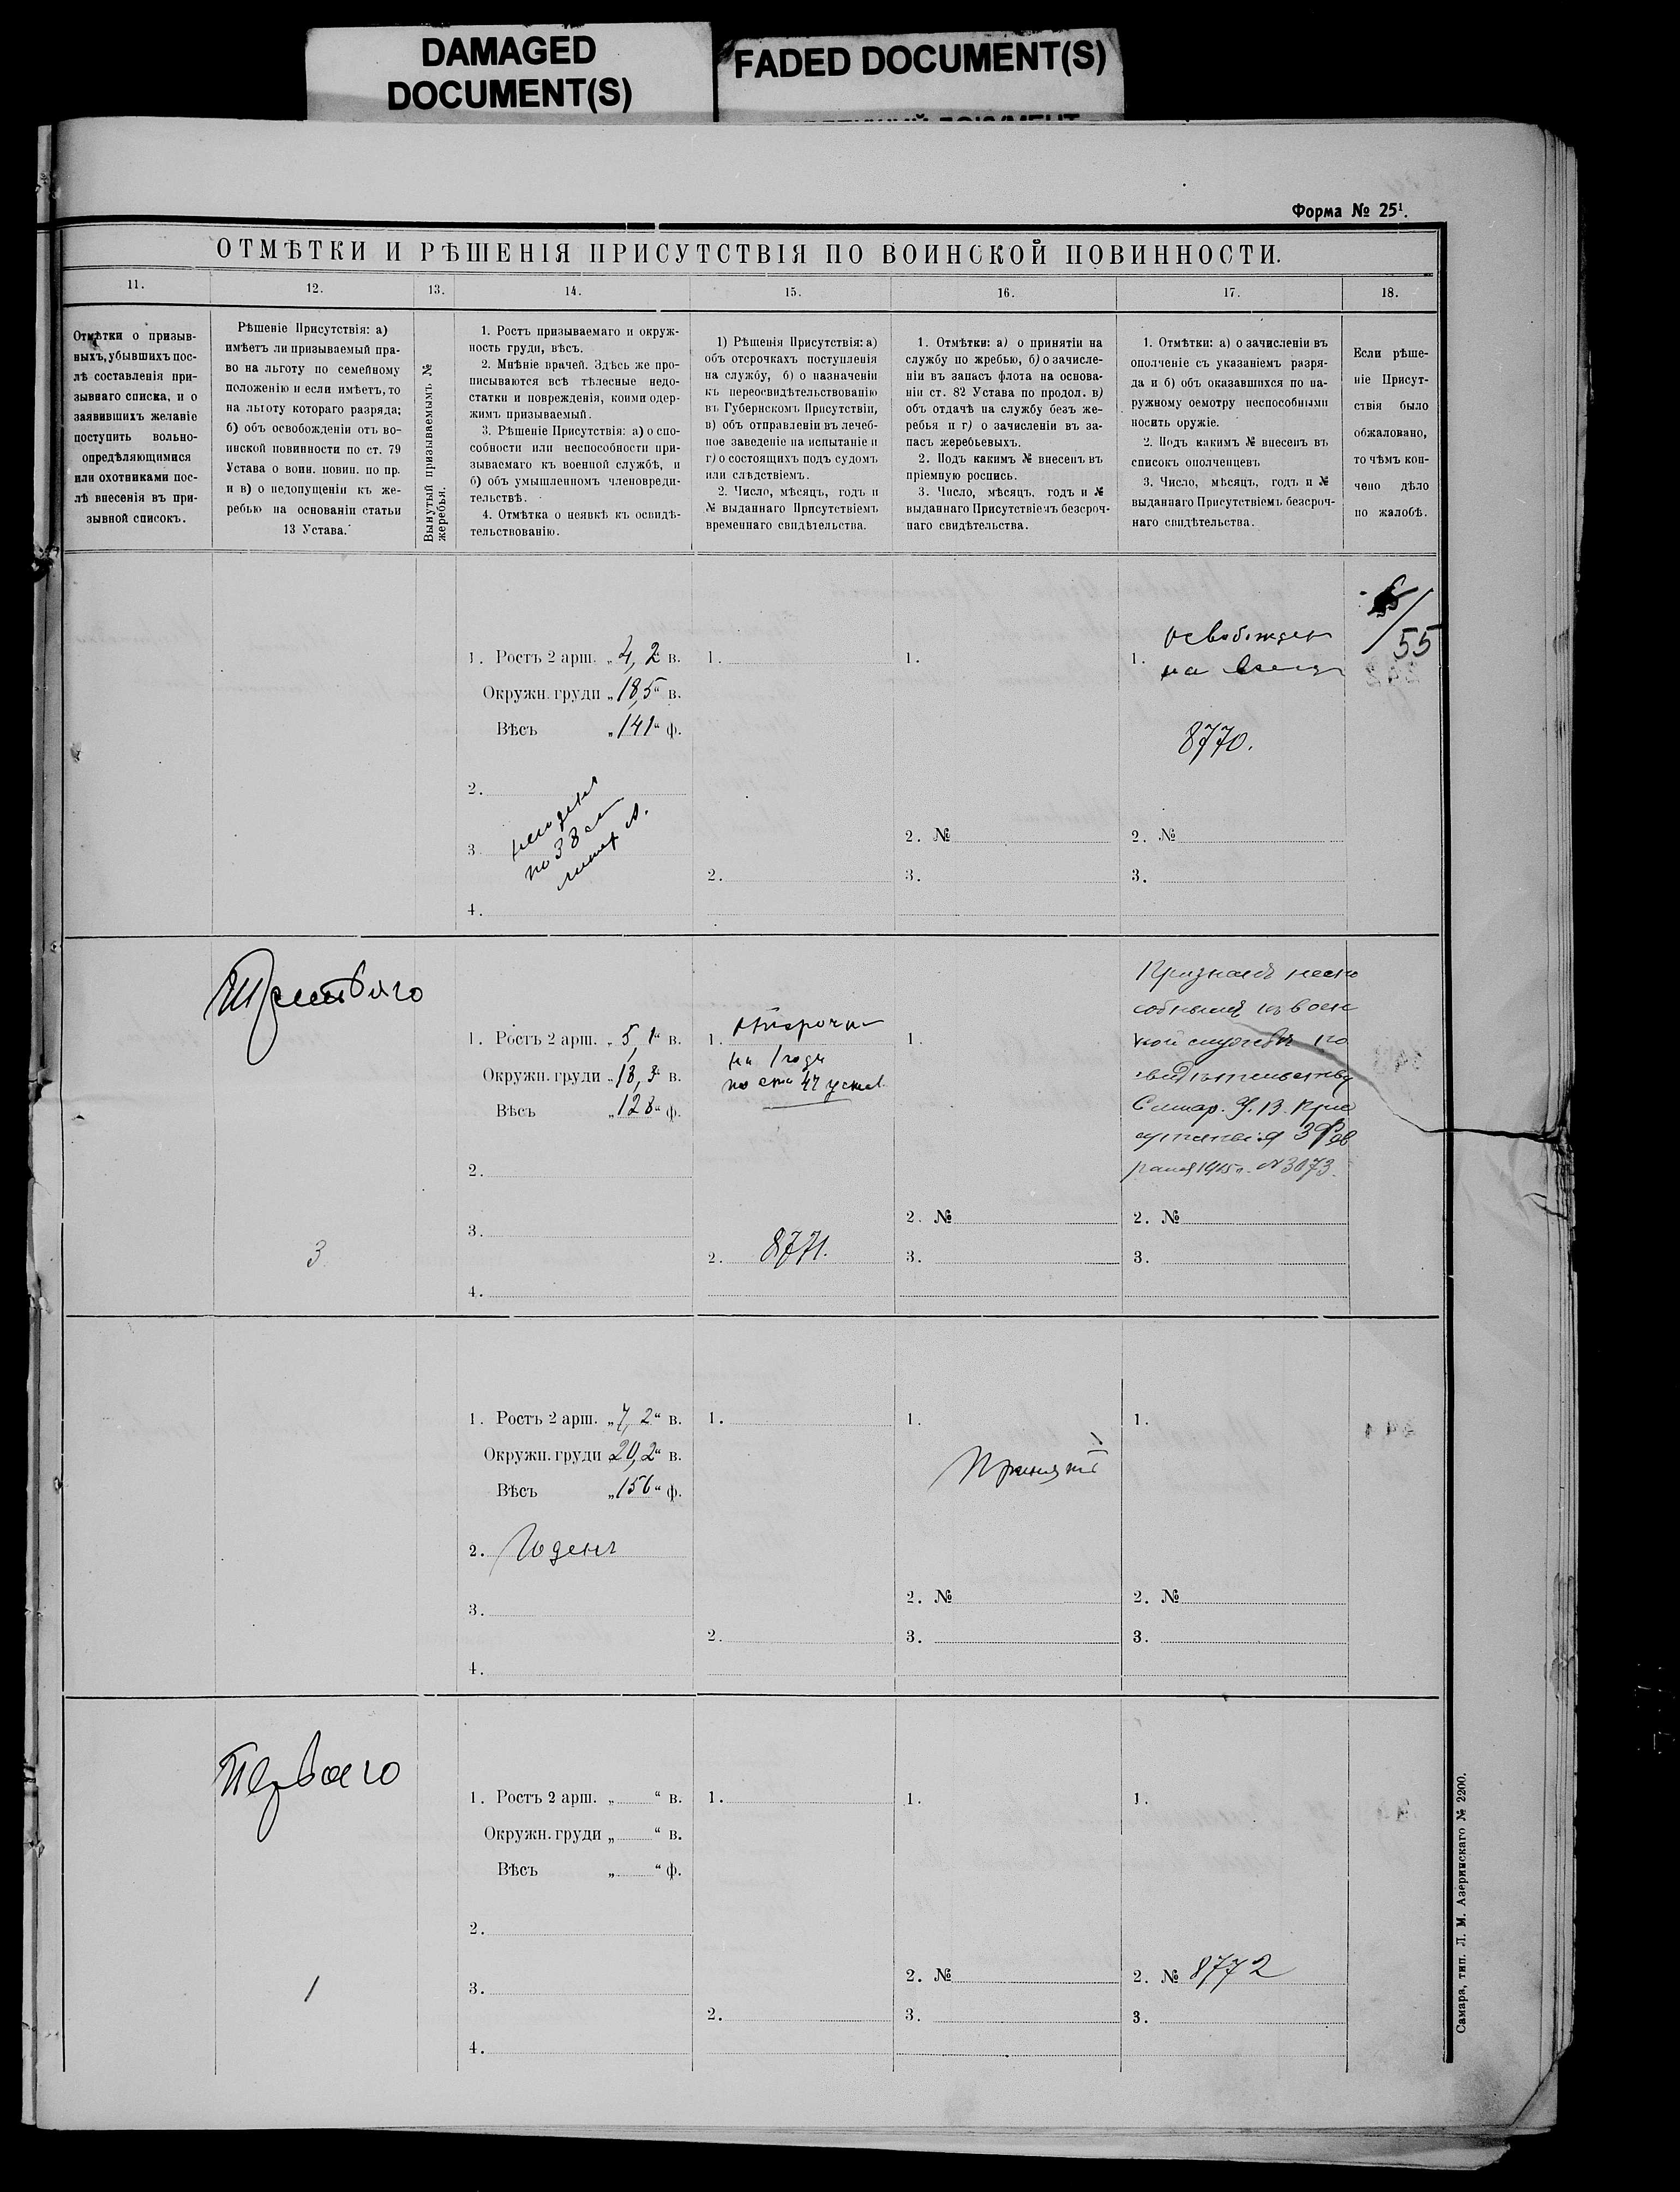 DAMAGED
DOCUMENT(S)
FADED DOCUMENT(S)
Форма № 25¹.
ОТМѢТКИ И РѢШЕНІЯ ПРИСУТСТВІЯ ПО ВОИНСКОЙ ПОВИННОСТИ.
11.
12.
13.
14.
15.
16.
17.
18.
Отмѣтки о призыв-
ныхъ, убывшихъ пос-
лѣ составленія при-
зывнаго списка, и о
заявившихъ желаніе
поступить вольно-
опредѣляющимися
или охотниками пос-
лѣ внесенія въ при-
зывной списокъ.
Рѣшеніе Присутствія: а)
имѣетъ ли призываемый пра-
во на льготу по семейному
положенію и если имѣетъ, то
на льготу котораго разряда;
б) объ освобожденіи отъ во-
инской повинности по ст. 79
Устава о воин. повин. по пр.
и в) о недопущеніи къ же-
ребью на основаніи статьи
13 Устава.
Вынутый призываемымъ №
жеребья.
1. Ростъ призываемаго и окруж-
ность груди, вѣсъ.
2. Мнѣніе врачей. Здѣсь же про-
писываются всѣ тѣлесные недо-
статки и поврежденія, коими одер-
жимъ призываемый.
3. Рѣшеніе Присутствія: а) о спо-
собности или неспособности при-
зываемаго къ военной службѣ, и
б) объ умышленномъ членовреди-
тельствѣ.
4. Отмѣтка о неявкѣ къ освидѣ-
тельствованію.
1) Рѣшенія Присутствія: а)
объ отсрочкахъ поступленія
на службу, б) о назначеніи
къ переосвидѣтельствованію
въ Губернскомъ Присутствіи,
в) объ отправленіи въ лечеб-
ное заведеніе на испытаніе и
г) о состоящихъ подъ судомъ
или слѣдствіемъ.
2. Число, мѣсяцъ, годъ и
№ выданнаго Присутствіемъ
временнаго свидѣтельства.
1. Отмѣтки: а) о принятіи на
службу по жребью, б) о зачисле-
ніи въ запасъ флота на основа-
ніи ст. 82 Устава по продол. в)
объ отдачѣ на службу безъ же-
ребья и г) о зачисленіи въ за-
пасъ жеребьевыхъ.
2. Подъ какимъ № внесенъ въ
пріемную роспись.
3. Число, мѣсяцъ, годъ и №
выданнаго Присутствіемъ безсроч-
наго свидѣтельства.
1. Отмѣтки: а) о зачисленіи въ
ополченіе съ указаніемъ разря-
да и б) объ оказавшихся по на-
ружному осмотру неспособными
носить оружіе.
2. Подъ какимъ № внесенъ въ
списокъ ополченцевъ
3. Число, мѣсяцъ, годъ и №
выданнаго Присутствіемъ безсроч-
наго свидѣтельства.
Если рѣше-
ніе Присут-
ствія было
обжаловано,
то чѣмъ кон-
чено дѣло
по жалобѣ.
55
1. Ростъ 2 арш. „4,2“ в.
Окружн. груди „18,5“ в.
Вѣсъ „141“ ф.
2.
3.
негоденъ
по 38 ст
4.
1.
2.
1.
2. №
3.
1. освобожден
на всегда
8770.
2. №
3.
Третьяго
3
1. Ростъ 2 арш. „5,1“ в.
Окружн. груди „18,3“ в.
Вѣсъ „128“ ф.
2.
3.
4.
1. отсрочка
на 1 годъ
по ст 47 устав
2. 8771.
1.
2. №
3.
Признанъ неспо
собнымъ къ воен
ной службѣ по
свидѣтельству
Самар. У. В. При
сутствія 3 Фев
раля 1915 г. № 3073.
2. №
3.
1. Ростъ 2 арш. „7,2“ в.
Окружн. груди 20,2“ в.
Вѣсъ „156“ ф.
2. Годенъ
3.
4.
1.
2.
1.
Принятъ
2. №
3.
1.
2. №
3.
Перваго
1
1. Ростъ 2 арш. „ “ в.
Окружн. груди „ “ в.
Вѣсъ „ “ ф.
2.
3.
4.
1.
2.
1.
2. №
3.
1.
2. № 8772
3.
Самара, тип. Л. М. Азеринскаго № 2200.